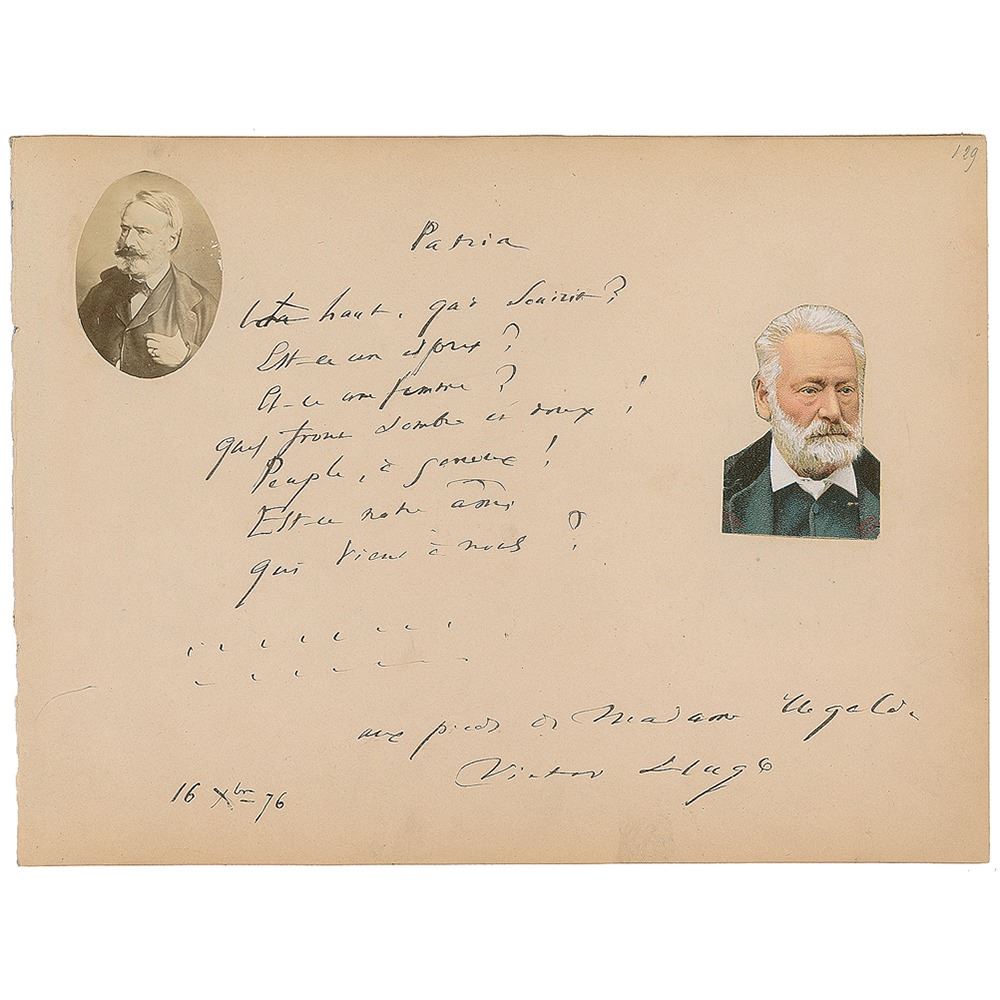 129
Patria
Là haut, qui sourit ?
Est-ce un esprit ?
Est-ce une femme ?
Quel front sombre et doux !
Peuple, à genoux !
Est-ce notre âme
qui vient à nous ?
aux pieds de Madame Ugalde
Victor Hugo
16 Xbre 76